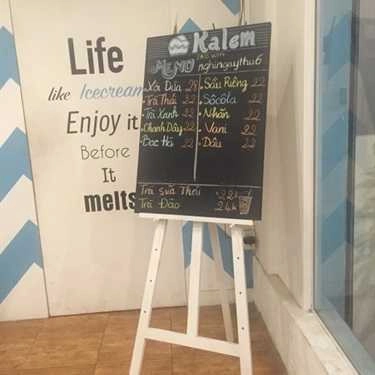 Life
like Icecream
Enjoy it
Before
It
melts
Kalem
MENU nghingaythu6
Xả Dừa 28
Trà Thái 22
Trà Xanh 22
Chanh Dây 22
Bạc Hà 22
Sầu Riêng 22
Sôcôla 22
Nhãn 22
Vani 22
Dâu 22
Trà sữa Thái 22k
Trà Đào 24k